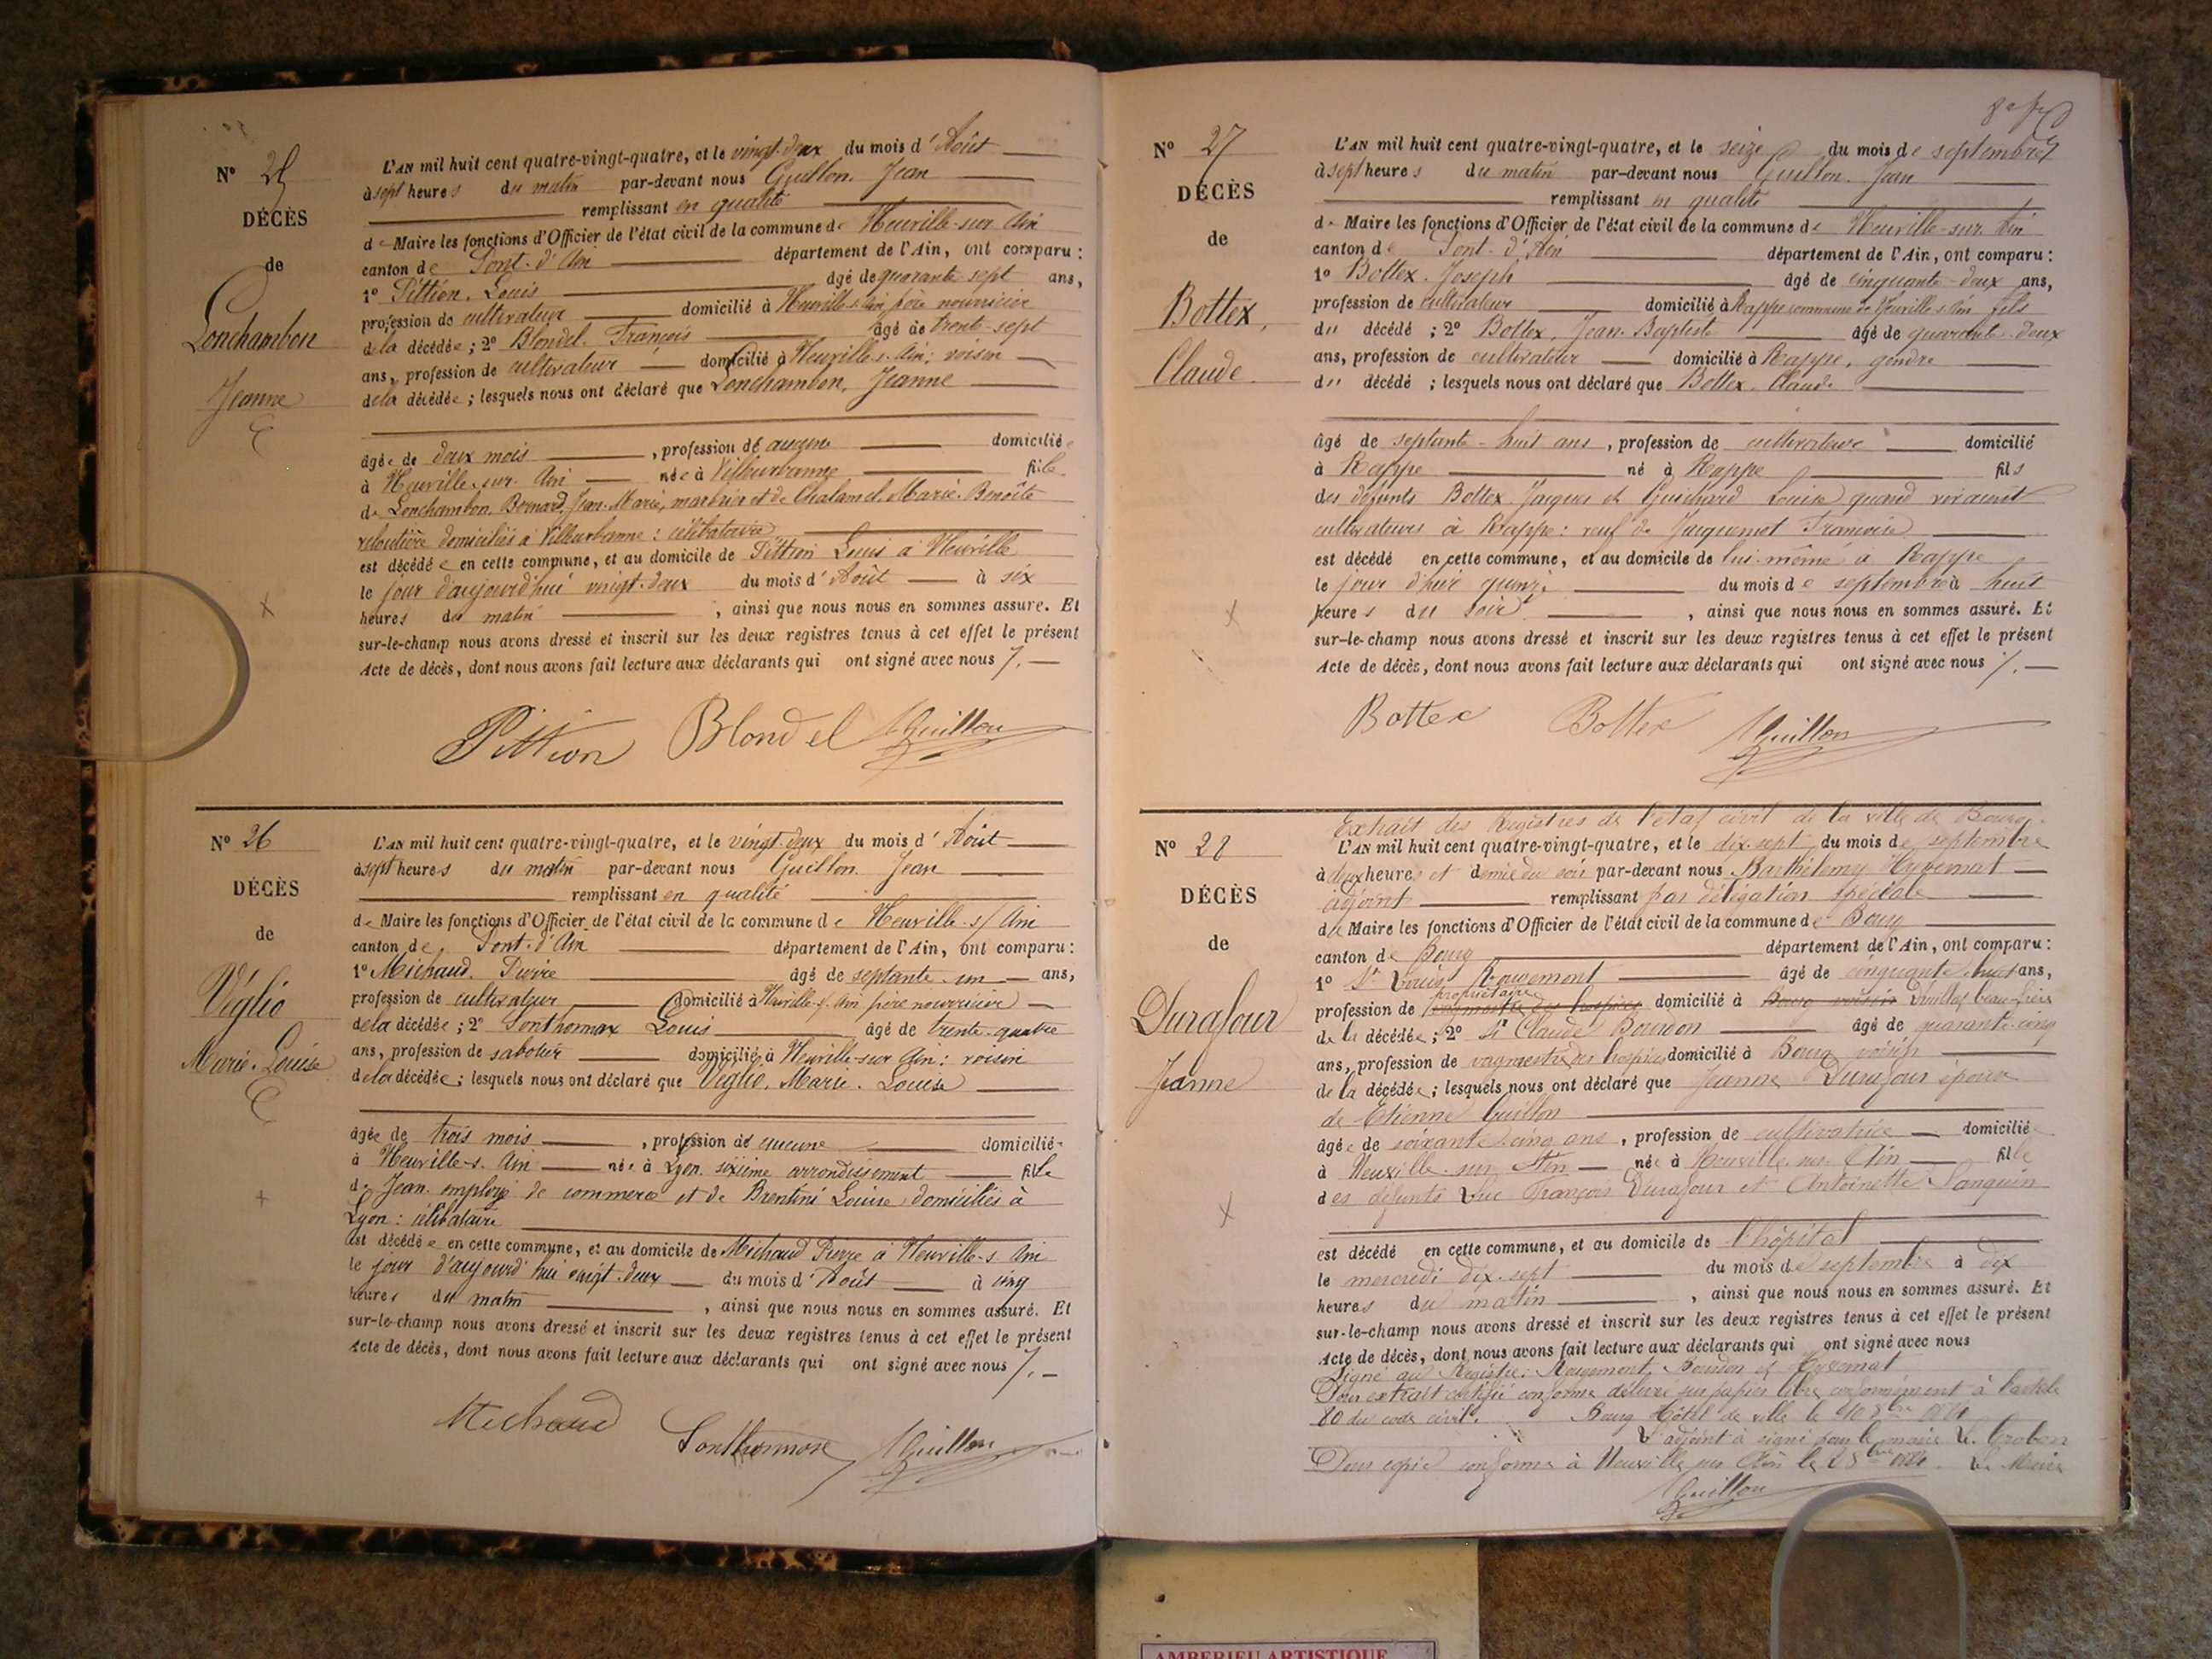 Nº 25
DÉCÈS
de
Lonchambon
Jeanne
L'AN mil huit cent quatre-vingt-quatre, et le vingt-deux du mois d'Août
à sept heures du matin par-devant nous Guillon, Jean
remplissant en qualité
de Maire les fonctions d'Officier de l'état civil de la commune de Neuville-sur-Ain
canton de Pont-d'Ain département de l'Ain, ont comparu :
1º Pittion, Louis âgé de quarante-sept ans,
profession de cultivateur domicilié à Neuville-s-Ain, père nourricier
de la décédée ; 2º Blondel, François âgé de trente-sept
ans, profession de cultivateur domicilié à Neuville-s.-Ain ; voisin
de la décédée ; lesquels nous ont déclaré que Lonchambon, Jeanne
âgée de deux mois, profession de aucune domiciliée
à Neuville-sur-Ain née à Villeurbanne fille
de Lonchambon, Bernard, Jean-Marie, marbrier et de Chalamel, Marie-Benoîte
veloutière domiciliés à Villeurbanne : célibataire
est décédée en cette commune, et au domicile de Pittion Louis à Neuville
le jour d'aujourd'hui vingt-deux du mois d'Août à six
heures du matin, ainsi que nous nous en sommes assuré. Et
sur-le-champ nous avons dressé et inscrit sur les deux registres tenus à cet effet le présent
Acte de décès, dont nous avons fait lecture aux déclarants qui ont signé avec nous /. —
Pittion Blondel Guillon
Nº 26
DÉCÈS
de
Véglio
Marie-Louise
L'AN mil huit cent quatre-vingt-quatre, et le vingt-deux du mois d'Août
à sept heures du matin par-devant nous Guillon, Jean
remplissant en qualité
de Maire les fonctions d'Officier de l'état civil de la commune de Neuville-s/Ain
canton de Pont-d'Ain département de l'Ain, ont comparu :
1º Michaud, Pierre âgé de septante-un ans,
profession de cultivateur domicilié à Neuville-s-Ain, père nourricier
de la décédée ; 2º Sonthonnax Louis âgé de trente-quatre
ans, profession de sabotier domicilié à Neuville-sur-Ain : voisin
de la décédée ; lesquels nous ont déclaré que Véglio, Marie-Louise
âgée de trois mois, profession de aucune domiciliée
à Neuville-s.-Ain née à Lyon, sixième arrondissement fille
de Jean, employé de commerce et de Brentini Louise, domiciliés à
Lyon : célibataire
est décédée en cette commune, et au domicile de Michaud Pierre à Neuville-s.-Ain
le jour d'aujourd'hui vingt-deux du mois d'Août à cinq
heures du matin, ainsi que nous nous en sommes assuré. Et
sur-le-champ nous avons dressé et inscrit sur les deux registres tenus à cet effet le présent
Acte de décès, dont nous avons fait lecture aux déclarants qui ont signé avec nous /. —
Michaud
Sonthonnax Guillon
Nº 27
DÉCÈS
de
Bottex,
Claude.
L'AN mil huit cent quatre-vingt-quatre, et le seize du mois de septembre
à sept heures du matin par-devant nous Guillon, Jean
remplissant en qualité
de Maire les fonctions d'Officier de l'état civil de la commune de Neuville-sur-Ain
canton de Pont-d'Ain département de l'Ain, ont comparu :
1º Bottex, Joseph âgé de cinquante-deux ans,
profession de cultivateur domicilié à Rappe commune de Neuville-s-Ain fils
du décédé ; 2º Bottex, Jean-Baptiste âgé de quarante-deux
ans, profession de cultivateur domicilié à Rappe, gendre
du décédé ; lesquels nous ont déclaré que Bottex, Claude
âgé de septante-huit ans, profession de cultivateur domicilié
à Rappe né à Rappe fils
des défunts Bottex Jacques et Guichard Louise quand vivaient
cultivateurs à Rappe : veuf de Jacquemet Françoise
est décédé en cette commune, et au domicile de lui-même à Rappe
le jour d'hier quinze du mois de septembre à huit
heures du soir, ainsi que nous nous en sommes assuré. Et
sur-le-champ nous avons dressé et inscrit sur les deux registres tenus à cet effet le présent
Acte de décès, dont nous avons fait lecture aux déclarants qui ont signé avec nous /. —
Bottex Bottex Guillon
Nº 28
DÉCÈS
de
Durafour
Jeanne
Extrait des Registres de l'état civil de la ville de Bourg.
L'AN mil huit cent quatre-vingt-quatre, et le dix-sept du mois de septembre
à deux heures et demie du soir par-devant nous Barthélemy
adjoint remplissant par délégation spéciale
de Maire les fonctions d'Officier de l'état civil de la commune de Bourg
canton de Bourg département de l'Ain, ont comparu :
1º Sr Louis Rougemont âgé de cinquante-huit ans,
propriétaire
profession de vaguemestre des hospices domicilié à Bourg voisin beau-frère
de la décédée ; 2º Sr Claude Bourdon âgé de quarante-cinq
ans, profession de vaguemestre des hospices domicilié à Bourg voisin
de la décédée ; lesquels nous ont déclaré que Jeanne Durafour épouse
de Etienne Guillon
âgée de soixante-cinq ans, profession de cultivatrice domiciliée
à Neuville-sur-Ain née à Neuville-sur-Ain fille
des défunts Luc François Durafour et Antoinette Tanguin
est décédé en cette commune, et au domicile de l'hôpital
le mercredi dix-sept du mois de septembre à dix
heures du matin, ainsi que nous nous en sommes assuré. Et
sur-le-champ nous avons dressé et inscrit sur les deux registres tenus à cet effet le présent
Acte de décès, dont nous avons fait lecture aux déclarants qui ont signé avec nous
Signé au Registre: Rougemont, Bourdon et
Pour extrait certifié conforme délivré sur papier libre conformément à l'article
80 du code civil. Bourg Hôtel de ville le
L'adjoint a signé pour le maire
Pour copie conforme à Neuville sur Ain le Le Maire
Guillon
AMBERIEU ARTISTIQUE